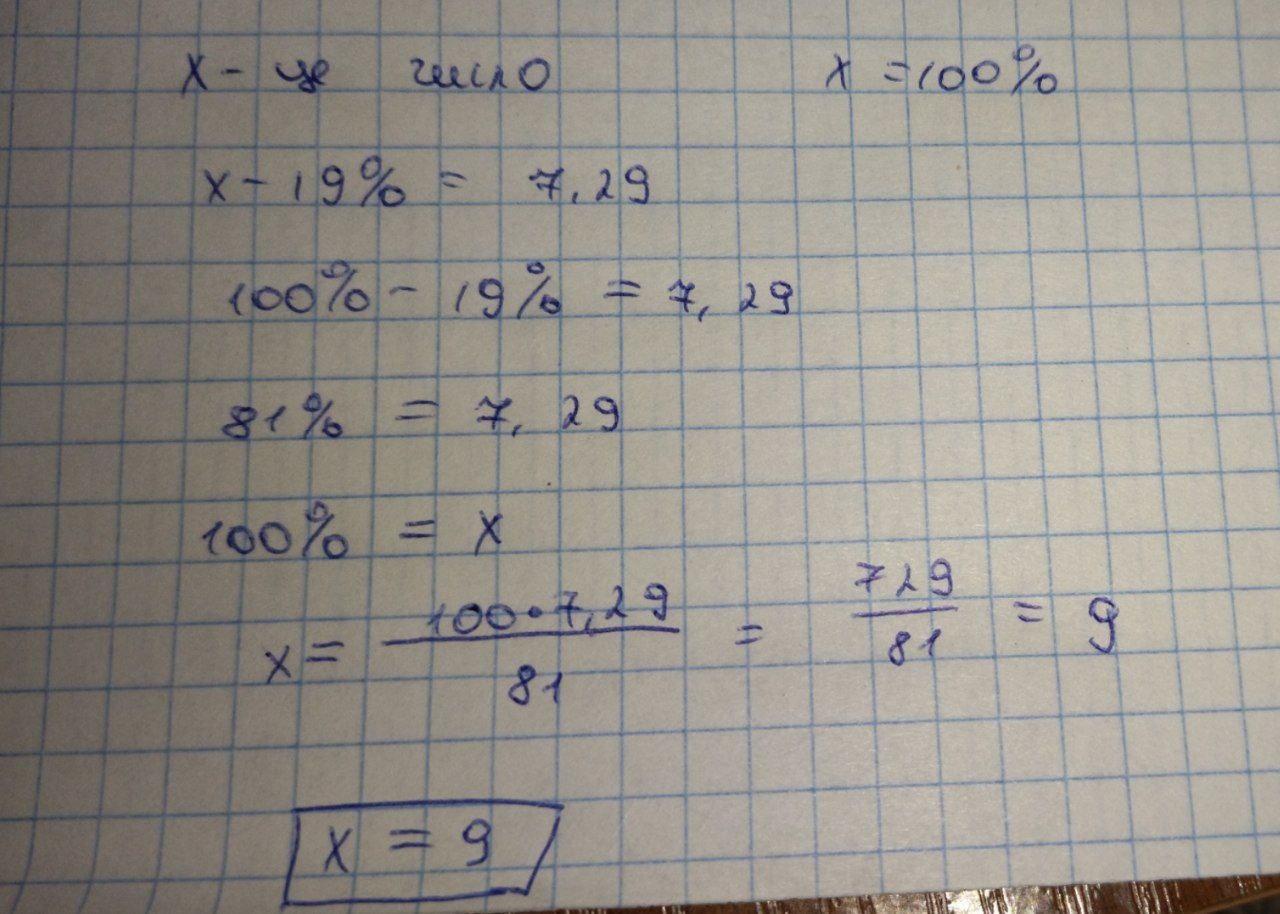 x - це число x = 100%
x - 19% = 7,29
100% - 19% = 7,29
81% = 7,29
100% = x
x = 100•7,29 / 81 = 729 / 81 = 9
x = 9